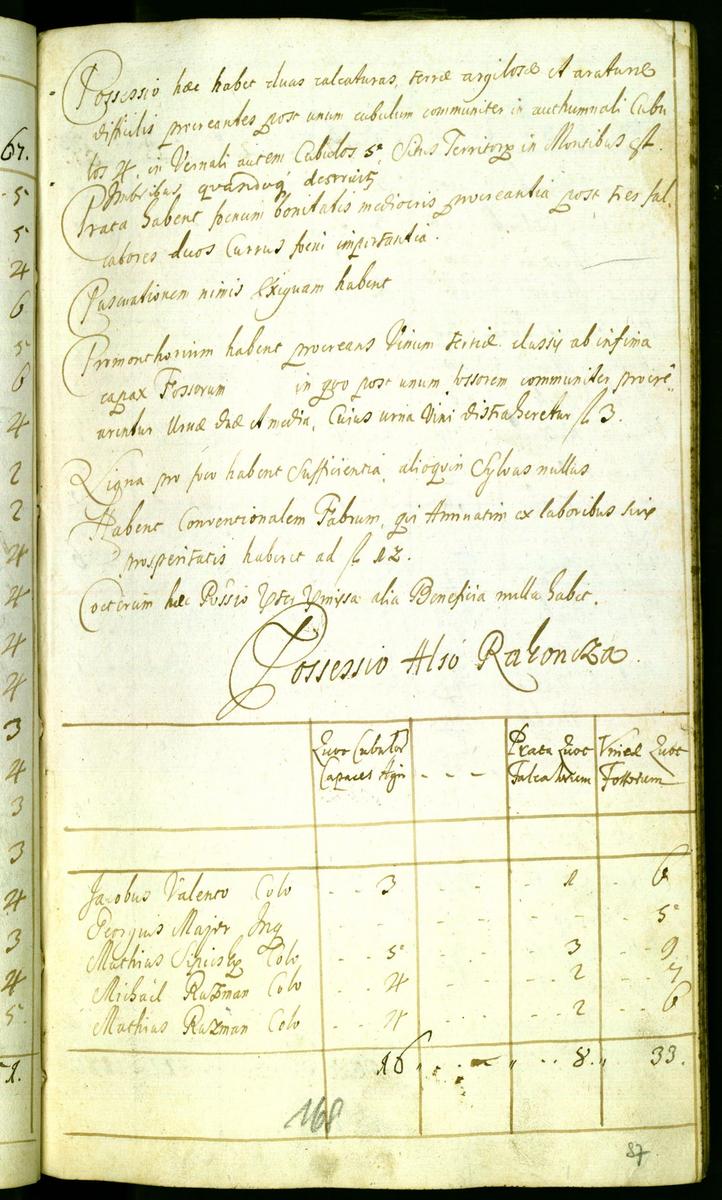 67.
5
5
4
6
5
6
4
2
2
4
4
4
4
3
4
3
3
4
3
4
5.
1.
Possessio hæc habet duas calcaturas, terræ argilosæ et araturæ
difficilis procreantes post unum cubulum communiter in authumnali Cubu
los 4. in Vernali autem Cubulos 5. Situs Territory in Montibus est.
Imbribus quandoq destruit
Prata habent foenum bonitatis mediocris procreantia post tres fal.
catores duos Currus foeni importantia.
Pascuationem nimis exiguam habent
Promonthorium habent procreans Vinum tertiæ classis ab infima
capax Fossorum in quo post unum fossorem communiter procre
arentur Urnæ duæ et media, Cuius urna Vini distraheretur fl 3.
Ligna pro foco habent Sufficientia, alioquin Sylvas nullas
Habent Conventionalem Fabrum, qui Annuatim ex laboribus suæ
prosperitatis haberet ad fl 12.
Coeterum hæc Possio pter pmissa alia Beneficia nulla habet.
Possessio Alsó Rakoncza.
Quot Cubulor Capaces Agri - - - Prata Quot Falcatorum Vineæ Quot Fossorum
Jacobus Valento Colo - - 3 - - - - 1 - - 6
Georgius Majer Inq - - - - - - - - 5
Mathias Colo - - 5 - - - - 3 - - 9
Michael Ruzman Colo - - 4 - - - - 2 - - 7
Mathias Ruzman Colo - - 4 - - - - 2 - - 6
16 " . . - " . . 8. " 33.
168
87